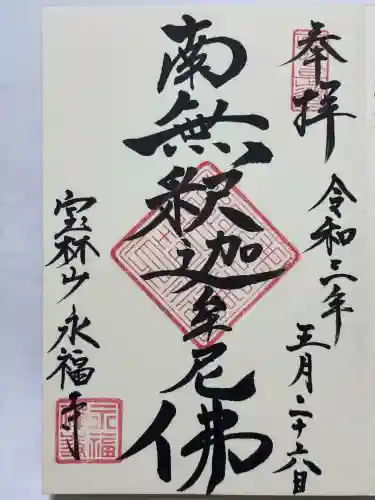 奉拝
令和三年
五月二十六日
南無釈迦牟尼佛
宝林山永福寺